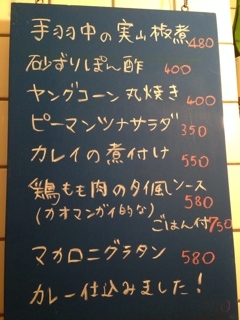 手羽中の実山椒煮 480
砂ずりぽん酢 400
ヤングコーン丸焼き 400
ピーマンツナサラダ 350
カレイの煮付け 550
鶏もも肉のタイ風ソース 580
(カオマンガイ的な) ごはん付750
マカロニグラタン 580
カレー仕込みました!